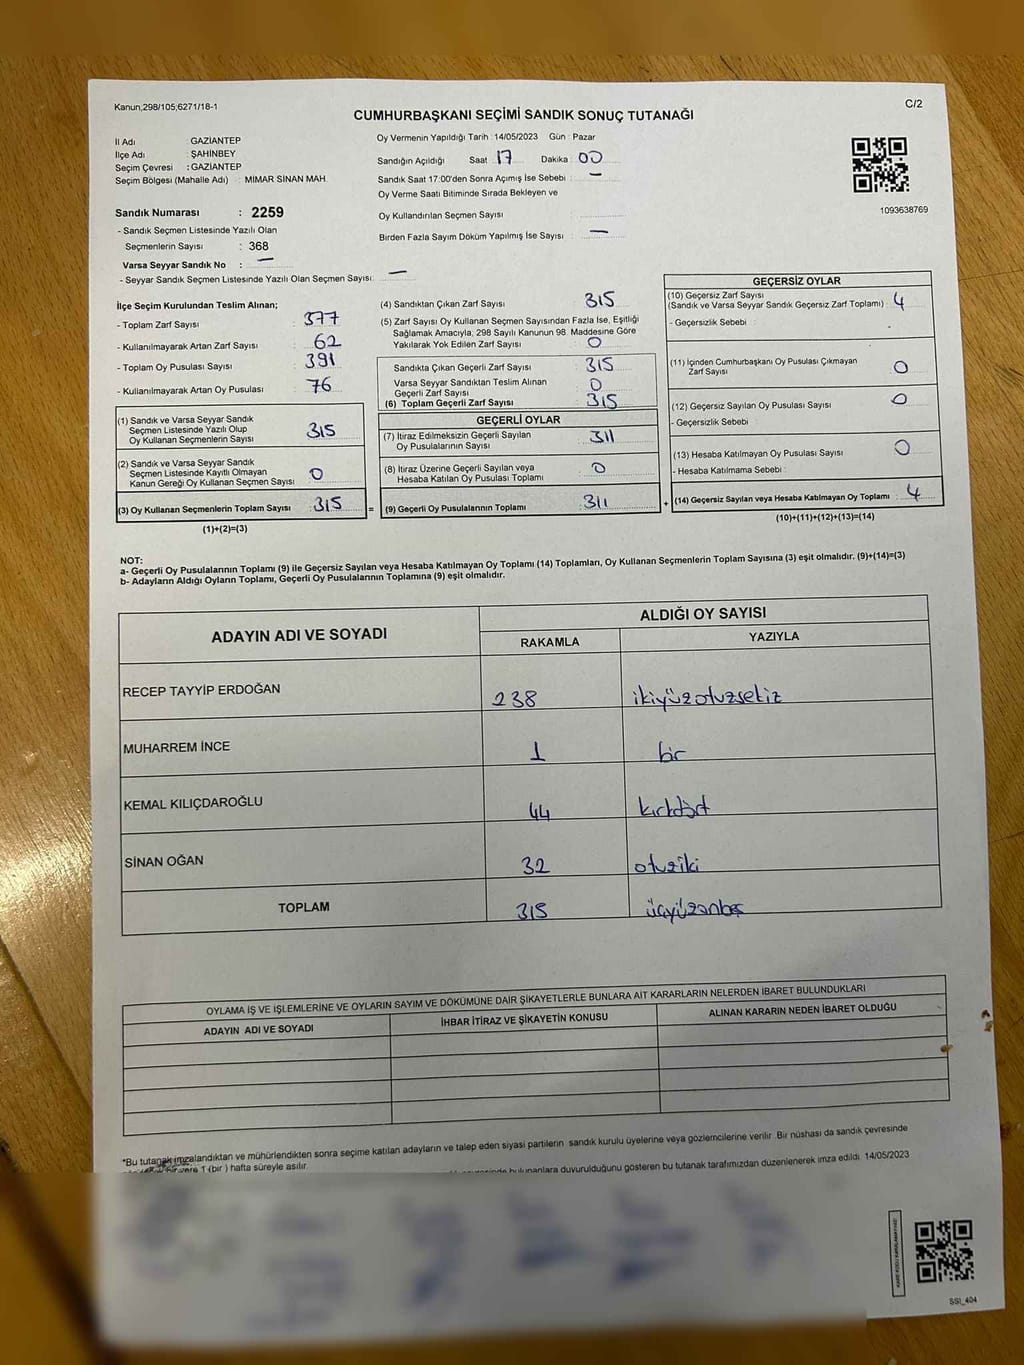 Kanun,298/105,6271/18-1
C/2
CUMHURBAŞKANI SEÇİMİ SANDIK SONUÇ TUTANAĞI
İl Adı : GAZİANTEP
İlçe Adı : ŞAHİNBEY
Seçim Çevresi : GAZİANTEP
Seçim Bölgesi (Mahalle Adı) : MİMAR SİNAN MAH.
Sandık Numarası : 2259
- Sandık Seçmen Listesinde Yazılı Olan
Seçmenlerin Sayısı : 368
Varsa Seyyar Sandık No : —
- Seyyar Sandık Seçmen Listesinde Yazılı Olan Seçmen Sayısı: —
Oy Vermenin Yapıldığı Tarih : 14/05/2023 Gün : Pazar
Sandığın Açıldığı Saat 17 Dakika : 00
Sandık Saat 17:00'den Sonra Açımış İse Sebebi : —
Oy Verme Saati Bitiminde Sırada Bekleyen ve
Oy Kullandırılan Seçmen Sayısı :
Birden Fazla Sayım Döküm Yapılmış İse Sayısı : —
1093638769
İlçe Seçim Kurulundan Teslim Alınan;
- Toplam Zarf Sayısı : 377
- Kullanılmayarak Artan Zarf Sayısı : 62
- Toplam Oy Pusulası Sayısı : 391
- Kullanılmayarak Artan Oy Pusulası : 76
(1) Sandık ve Varsa Seyyar Sandık
Seçmen Listesinde Yazılı Olup
Oy Kullanan Seçmenlerin Sayısı : 315
(2) Sandık ve Varsa Seyyar Sandık
Seçmen Listesinde Kayıtlı Olmayan
Kanun Gereği Oy Kullanan Seçmen Sayısı : 0
(3) Oy Kullanan Seçmenlerin Toplam Sayısı : 315 =
(1)+(2)=(3)
(4) Sandıktan Çıkan Zarf Sayısı : 315
(5) Zarf Sayısı Oy Kullanan Seçmen Sayısından Fazla İse, Eşitliği
Sağlamak Amacıyla; 298 Sayılı Kanunun 98. Maddesine Göre
Yakılarak Yok Edilen Zarf Sayısı : 0
Sandıkta Çıkan Geçerli Zarf Sayısı : 315
Varsa Seyyar Sandıktan Teslim Alınan
Geçerli Zarf Sayısı : 0
(6) Toplam Geçerli Zarf Sayısı : 315
GEÇERLİ OYLAR
(7) İtiraz Edilmeksizin Geçerli Sayılan
Oy Pusulalarının Sayısı : 311
(8) İtiraz Üzerine Geçerli Sayılan veya
Hesaba Katılan Oy Pusulası Toplamı : 0
(9) Geçerli Oy Pusulalarının Toplamı : 311 +
GEÇERSİZ OYLAR
(10) Geçersiz Zarf Sayısı
(Sandık ve Varsa Seyyar Sandık Geçersiz Zarf Toplamı) : 4
- Geçersizlik Sebebi :
(11) İçinden Cumhurbaşkanı Oy Pusulası Çıkmayan
Zarf Sayısı : 0
(12) Geçersiz Sayılan Oy Pusulası Sayısı : 0
- Geçersizlik Sebebi :
(13) Hesaba Katılmayan Oy Pusulası Sayısı : 0
- Hesaba Katılmama Sebebi :
(14) Geçersiz Sayılan veya Hesaba Katılmayan Oy Toplamı : 4
(10)+(11)+(12)+(13)=(14)
NOT:
a- Geçerli Oy Pusulalarının Toplamı (9) ile Geçersiz Sayılan veya Hesaba Katılmayan Oy Toplamı (14) Toplamları, Oy Kullanan Seçmenlerin Toplam Sayısına (3) eşit olmalıdır. (9)+(14)=(3)
b- Adayların Aldığı Oyların Toplamı, Geçerli Oy Pusulalarının Toplamına (9) eşit olmalıdır.
ADAYIN ADI VE SOYADI
ALDIĞI OY SAYISI
RAKAMLA YAZIYLA
RECEP TAYYİP ERDOĞAN 238 ikiyüzotuzsekiz
MUHARREM İNCE 1 bir
KEMAL KILIÇDAROĞLU 44 kırkdört
SİNAN OĞAN 32 otuziki
TOPLAM 315 üçyüzonbeş
OYLAMA İŞ VE İŞLEMLERİNE VE OYLARIN SAYIM VE DÖKÜMÜNE DAİR ŞİKAYETLERLE BUNLARA AİT KARARLARIN NELERDEN İBARET BULUNDUKLARI
ADAYIN ADI VE SOYADI İHBAR İTİRAZ VE ŞİKAYETİN KONUSU ALINAN KARARIN NEDEN İBARET OLDUĞU
*Bu tutanak imzalandıktan ve mühürlendikten sonra seçime katılan adayların ve talep eden siyasi partilerin sandık kurulu üyelerine veya gözlemcilerine verilir. Bir nüshası da sandık çevresinde
1 (bir ) hafta süreyle asılır.
bulunanlara duyurulduğunu gösteren bu tutanak tarafımızdan düzenlenerek imza edildi. 14/05/2023
SSİ_404